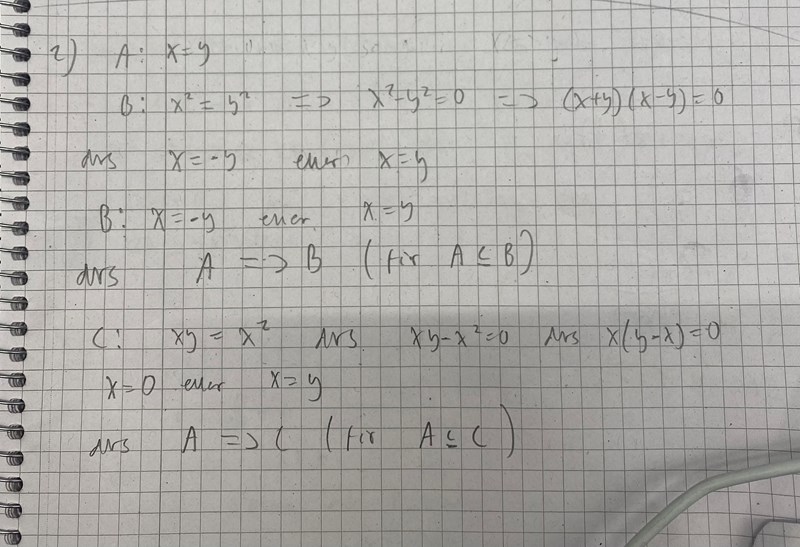 2) A: x=y
B: x² = y² => x²-y²=0 => (x+y)(x-y)=0
dvs x=-y eller x=y
B: x=-y eller x=y
dvs A => B (för A ⊆ B)
C: xy = x² dvs. xy-x²=0 dvs x(y-x)=0
x=0 eller x=y
dvs A => C (för A ⊆ C)